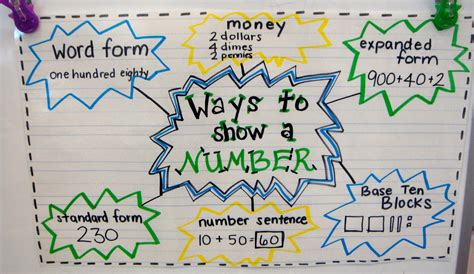 Word form
one hundred eighty
money
2 dollars
4 dimes
2 pennies
expanded
form
900+40+2
Ways to
show a
NUMBER
standard form
230
number sentence
10 + 50 = 60
Base Ten
Blocks